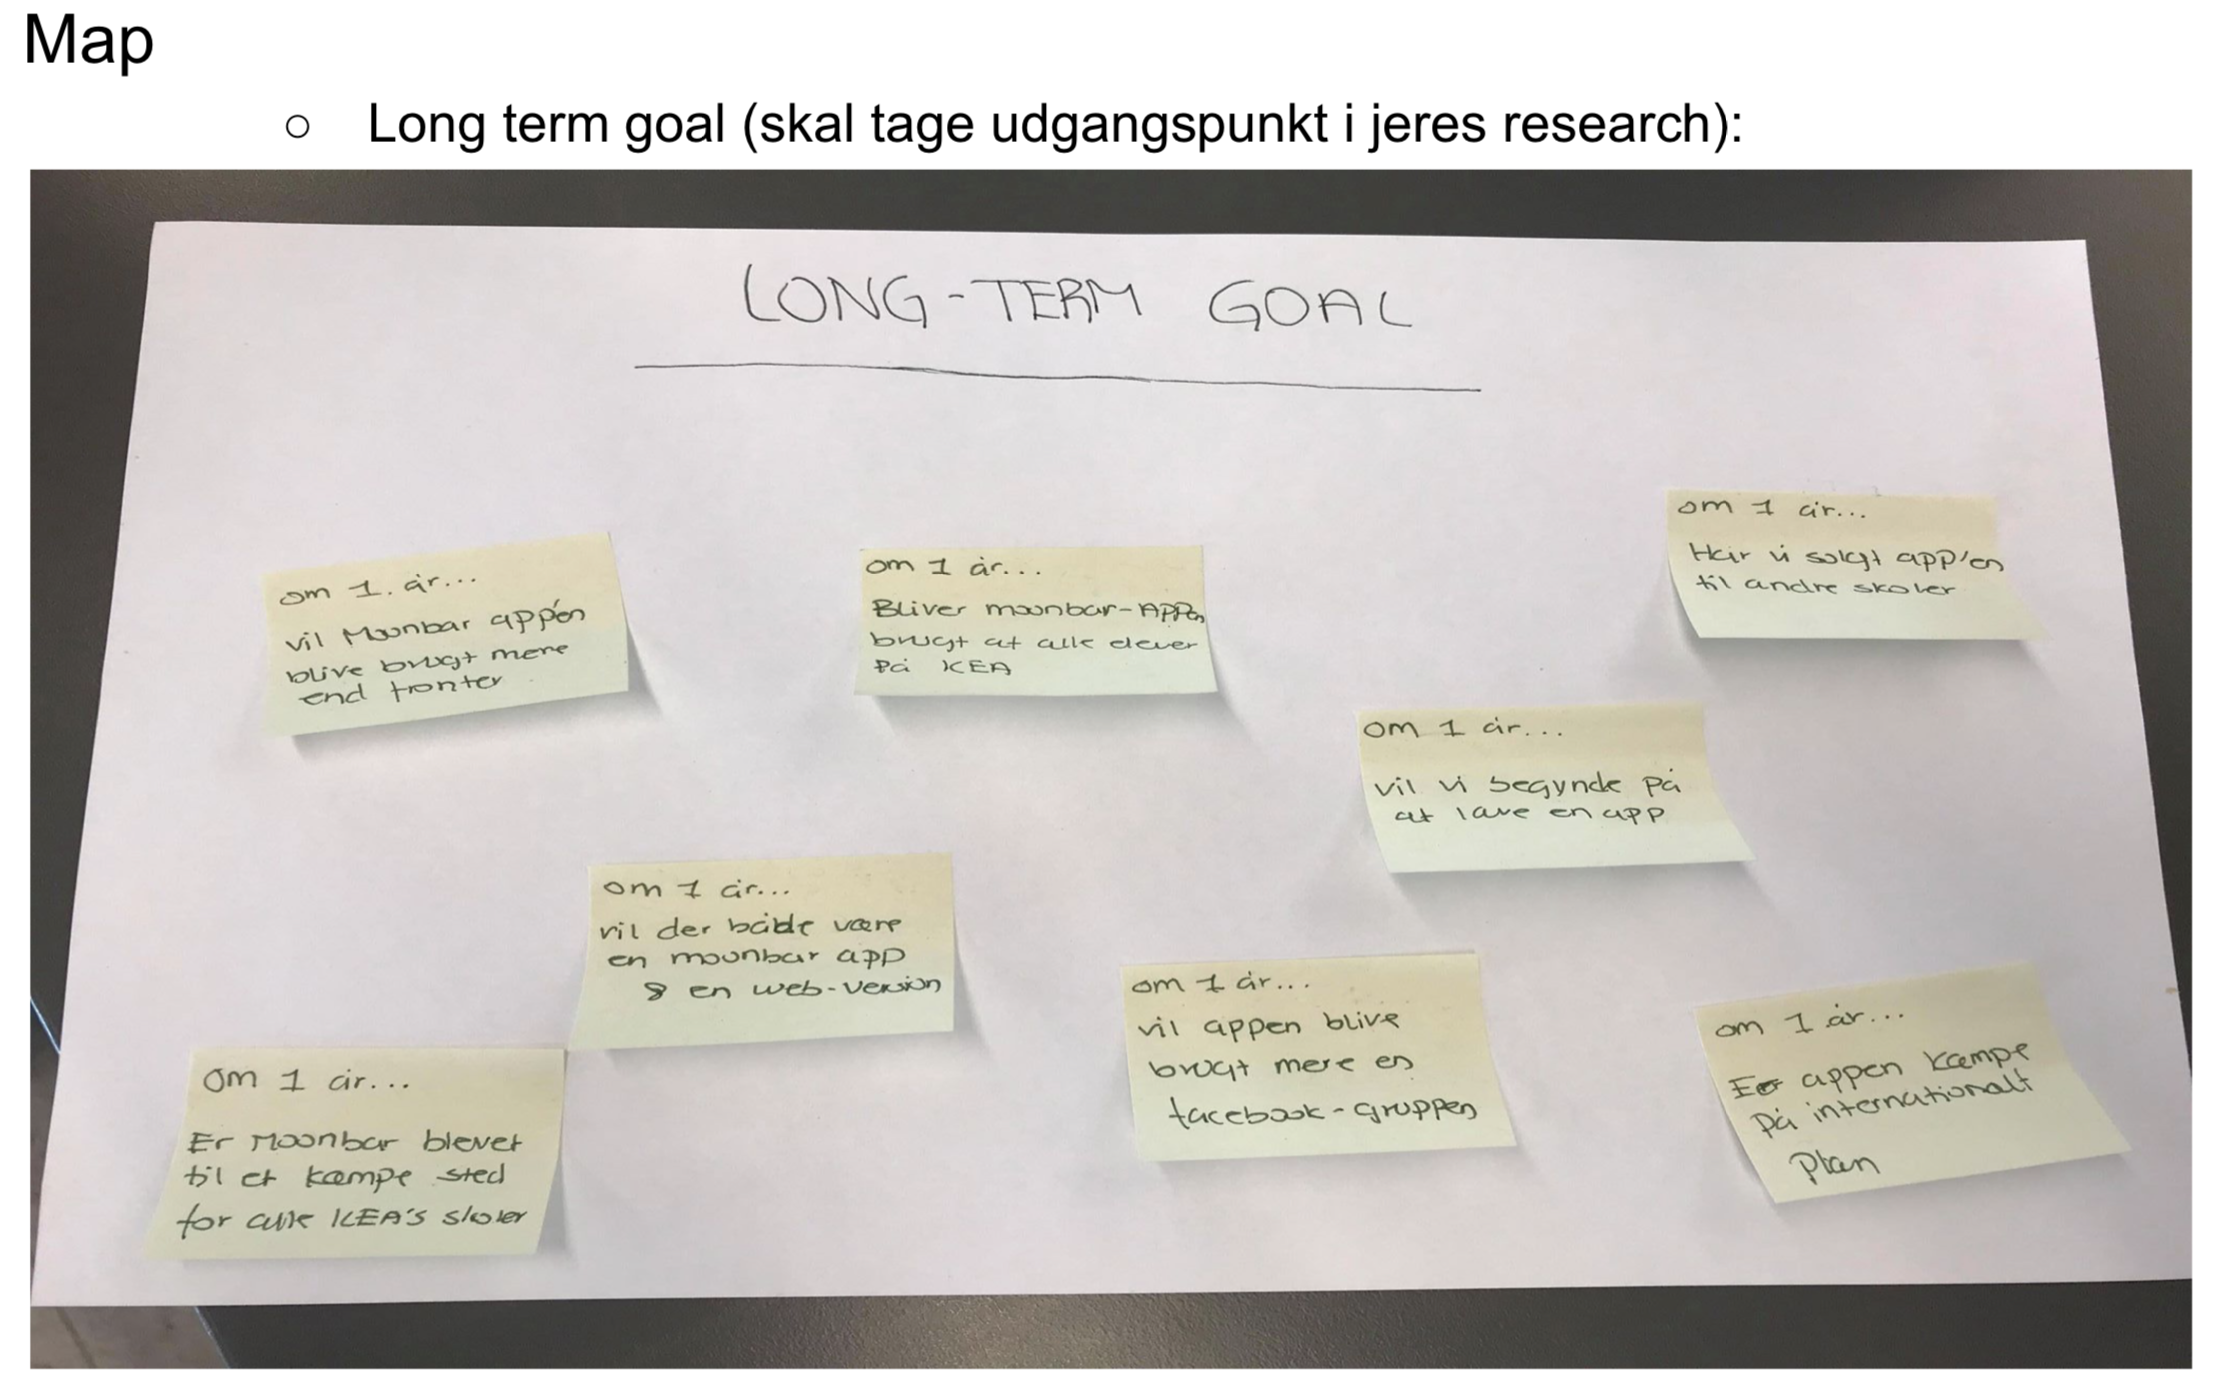 Map
○ Long term goal (skal tage udgangspunkt i jeres research):
LONG-TERM GOAL
om 1. år...
vil Moonbar app'en
blive brugt mere
end fronter
om 1 år...
Bliver moonbar-APPen
brugt af alle elever
på KEA
om 1 år...
Har vi solgt app'en
til andre skoler
om 1 år...
vil vi begynde på
at lave en app
om 1 år...
vil der både være
en moonbar app
& en web-version
om 1 år...
vil appen blive
brugt mere en
facebook-gruppen
om 1 år...
Er appen kæmpe
på internationalt
plan
om 1 år...
Er Moonbar blevet
til et kæmpe sted
for alle KEA'S skoler